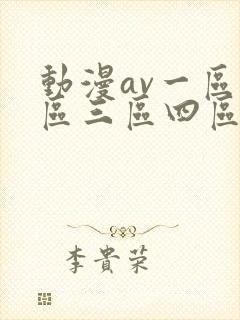 動漫av一區
區三區四區
李貴荣